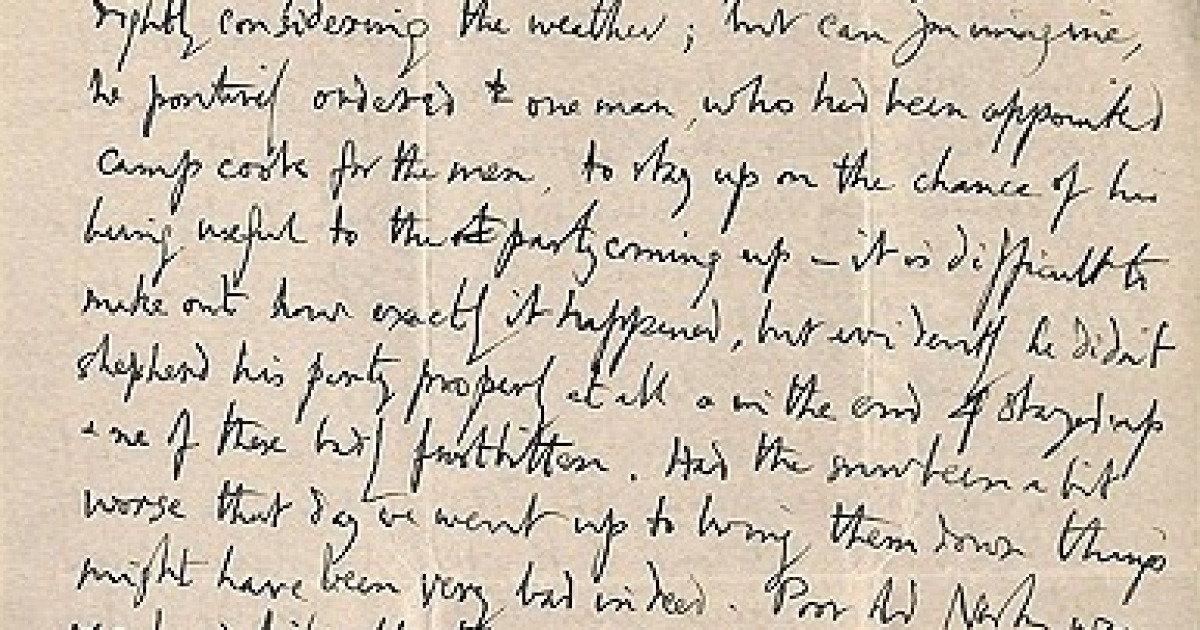 rightly considering the weather; but can you imagine,
he positively ordered one man, who had been appointed
camp cook for the men, to stay up on the chance of his
being useful to the party coming up – it is difficult to
make out how exactly it happened, but evidently he didn't
shepherd his party properly at all & in the end 4 stayed up
& one of these badly frostbitten. Had the snow been a bit
worse that day we went up to bring them down things
might have been very bad indeed. Poor old